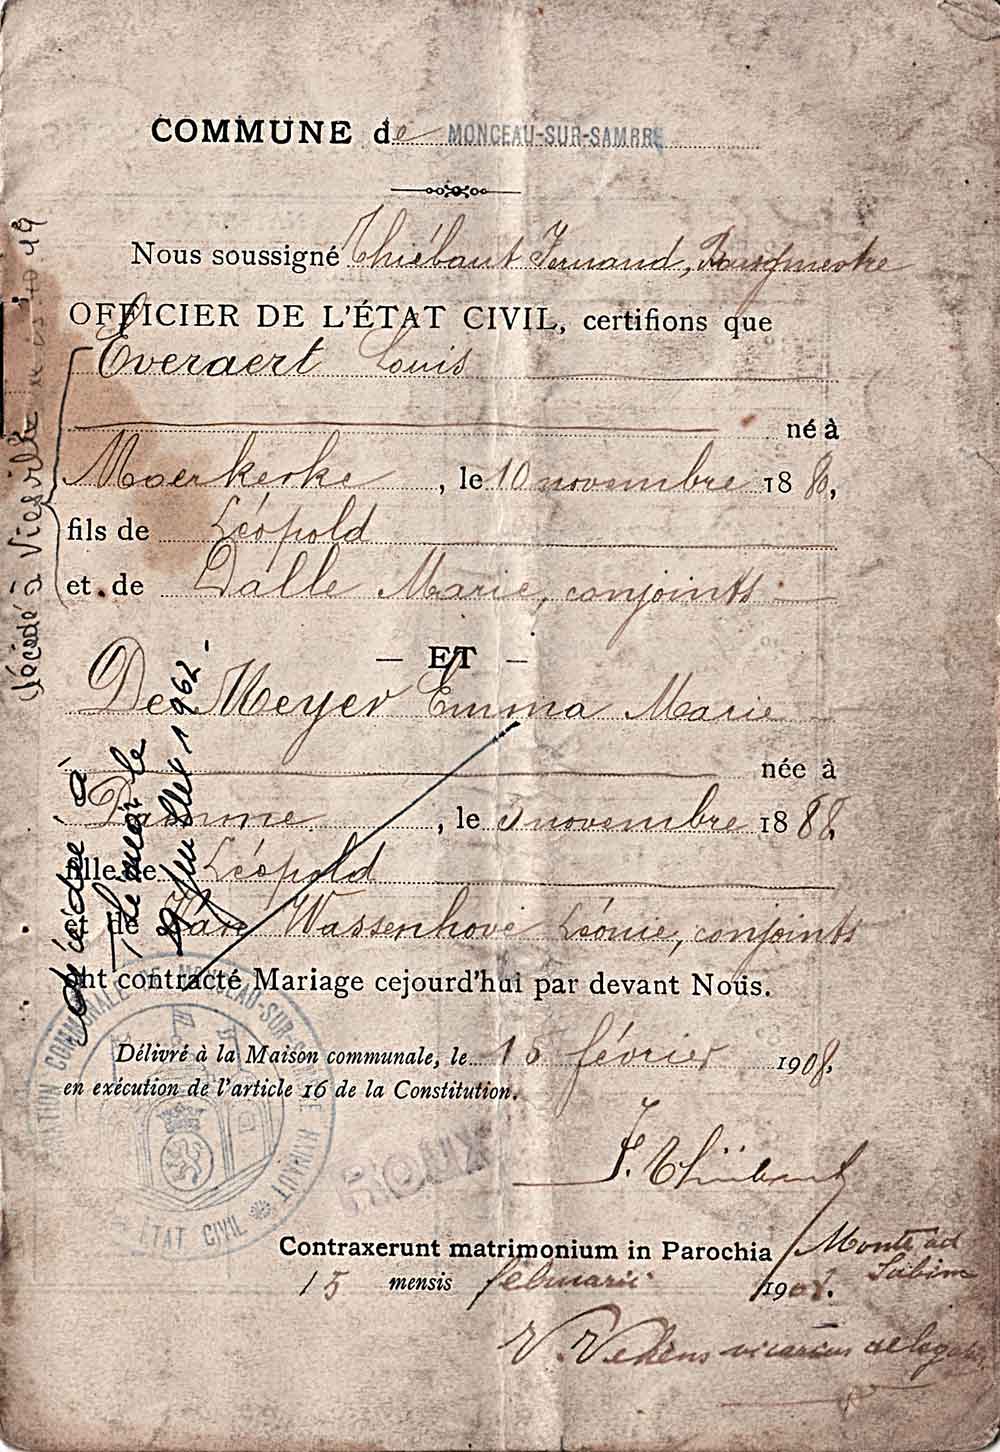 COMMUNE de MONCEAU-SUR-SAMBRE
Nous soussigné Thiébaut Fernand, Bourgmestre
OFFICIER DE L'ÉTAT CIVIL, certifions que
Everaert Louis
né à
Moerkerke, le 10 novembre 1880,
fils de Léopold
et de Dalle Marie, conjoints
— ET —
De Meyer Emma Marie
née à
Damme, le 3 novembre 1888,
fille de Léopold
et de Van Wassenhove Léonie, conjoints
ont contracté Mariage cejourd'hui par devant Nous.
Délivré à la Maison communale, le 15 février 1908,
en exécution de l'article 16 de la Constitution.
F. Thiébaut
ROUX
Contraxerunt matrimonium in Parochia Monte ad
Sabim
15 mensis februarii 1908.
vicarius delegatus
décédé à Viesville
décédé à
le
juillet 1962
COMMUNALE DE MONCEAU-SUR-SAMBRE HAINAUT
ÉTAT CIVIL